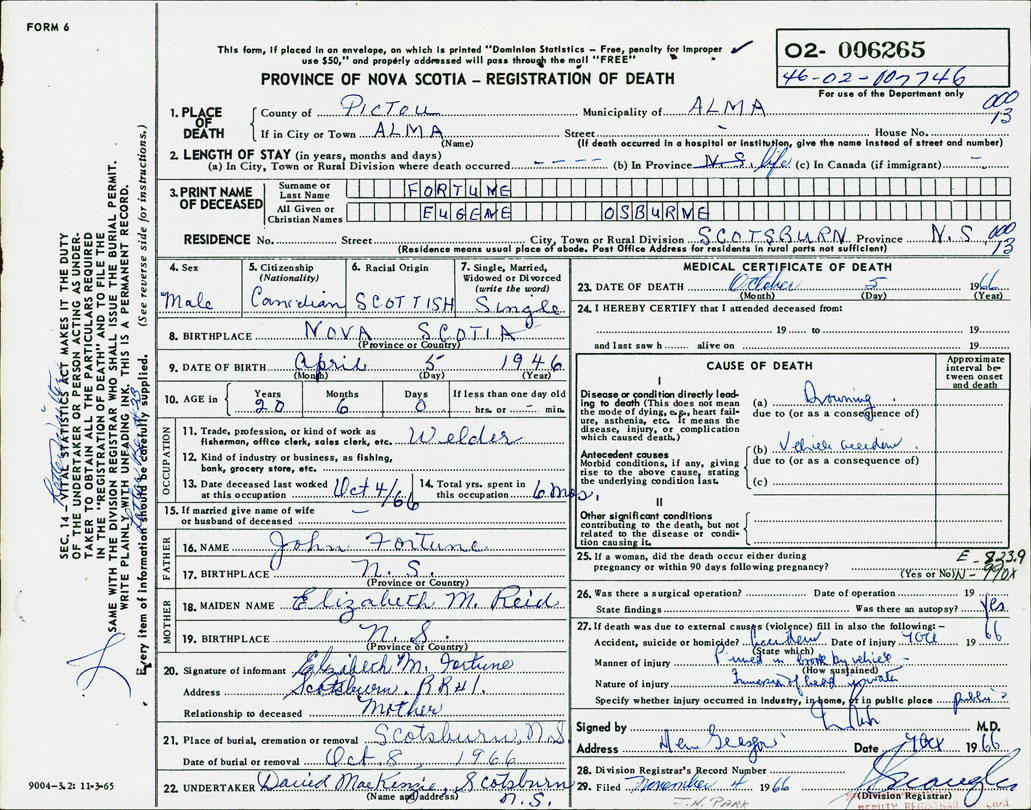 FORM 6
This form, if placed in an envelope, on which is printed "Dominion Statistics – Free, penalty for improper
use $50," and properly addressed will pass through the mail "FREE"
PROVINCE OF NOVA SCOTIA – REGISTRATION OF DEATH
O2- 006265
46-02-007746
For use of the Department only
000
13
1. PLACE OF DEATH
County of PICTOU Municipality of ALMA
If in City or Town ALMA Street - House No.
(Name) (If death occurred in a hospital or institution, give the name instead of street and number)
2. LENGTH OF STAY (in years, months and days)
(a) In City, Town or Rural Division where death occurred - - - - (b) In Province N.S. life (c) In Canada (if immigrant) -
3. PRINT NAME OF DECEASED
Surname or Last Name FORTUNE
All Given or Christian Names EUGENE OSBURNE
RESIDENCE No. Street City, Town or Rural Division SCOTSBURN Province N.S. 000
13
(Residence means usual place of abode. Post Office Address for residents in rural parts not sufficient)
4. Sex
Male
5. Citizenship
(Nationality)
Canadian
6. Racial Origin
SCOTTISH
7. Single, Married,
Widowed or Divorced
(write the word)
Single
8. BIRTHPLACE NOVA SCOTIA
(Province or Country)
9. DATE OF BIRTH April 5 1946
(Month) (Day) (Year)
10. AGE in Years Months Days If less than one day old
20 6 0 hrs. or - min.
OCCUPATION
11. Trade, profession, or kind of work as
fisherman, office clerk, sales clerk, etc. Welder
12. Kind of industry or business, as fishing,
bank, grocery store, etc.
13. Date deceased last worked
at this occupation Oct 4/66
14. Total yrs. spent in
this occupation 6 mos.
15. If married give name of wife
or husband of deceased -
FATHER
16. NAME John Fortune
17. BIRTHPLACE N.S.
(Province or Country)
MOTHER
18. MAIDEN NAME Elizabeth M. Reid
19. BIRTHPLACE N.S.
(Province or Country)
20. Signature of informant Elizabeth M. Fortune
Address Scotsburn, RR#1.
Relationship to deceased Mother
21. Place of burial, cremation or removal Scotsburn, N.S.
Date of burial or removal Oct. 8, 1966
22. UNDERTAKER David MacKenzie, Scotsburn
(Name and address) N.S.
MEDICAL CERTIFICATE OF DEATH
23. DATE OF DEATH October 5 1966
(Month) (Day) (Year)
24. I HEREBY CERTIFY that I attended deceased from:
19 to 19
and last saw h alive on 19
CAUSE OF DEATH
Approximate
interval be-
tween onset
and death
I
Disease or condition directly lead-
ing to death (This does not mean
the mode of dying, e.g., heart fail-
ure, asthenia, etc. It means the
disease, injury, or complication
which caused death.)
(a) Drowning
due to (or as a consequence of)
Antecedent causes
Morbid conditions, if any, giving
rise to the above cause, stating
the underlying condition last.
(b) Vehicle accident
due to (or as a consequence of)
(c)
II
Other significant conditions
contributing to the death, but not
related to the disease or condi-
tion causing it.
25. If a woman, did the death occur either during
pregnancy or within 90 days following pregnancy?
(Yes or No)
26. Was there a surgical operation? Date of operation 19
State findings Was there an autopsy? Yes
27. If death was due to external causes (violence) fill in also the following:–
Accident, suicide or homicide? Accident Date of injury 1966
(State which)
Manner of injury Pinned in brook by vehicle
(How sustained)
Nature of injury Immersion of head in water
Specify whether injury occurred in industry, in home, or in public place public
Signed by M.D.
Address New Glasgow Date 7 Oct 1966
28. Division Registrar's Record Number
29. Filed November 4 1966
(Division Registrar)
J.N. PARK
SEC. 14 – VITAL STATISTICS ACT MAKES IT THE DUTY
OF THE UNDERTAKER OR PERSON ACTING AS UNDER-
TAKER TO OBTAIN ALL THE PARTICULARS REQUIRED
IN THE "REGISTRATION OF DEATH" AND TO FILE THE
SAME WITH THE DIVISION REGISTRAR WHO SHALL ISSUE THE BURIAL PERMIT.
WRITE PLAINLY WITH UNFADING INK. THIS IS A PERMANENT RECORD.
Every item of information should be carefully supplied. (See reverse side for instructions.)
9004-3.2: 11-3-65